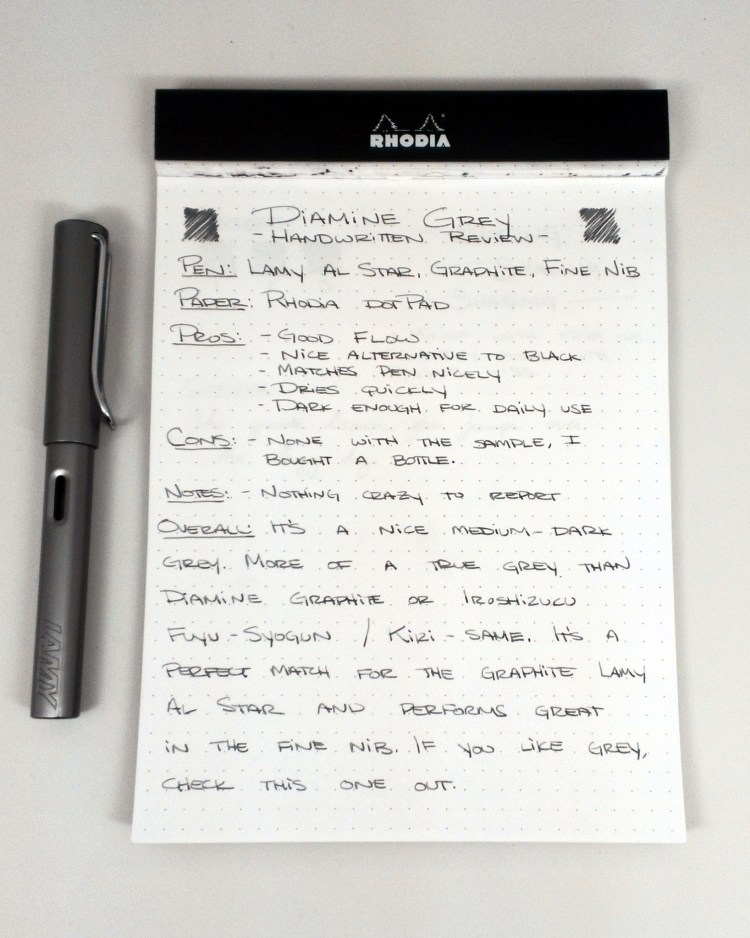 RHODIA
DIAMINE GREY
- HANDWRITTEN REVIEW -
PEN: LAMY AL STAR, GRAPHITE, FINE NIB
PAPER: RHODIA DOTPAD
PROS: - GOOD FLOW
- NICE ALTERNATIVE TO BLACK
- MATCHES PEN NICELY
- DRIES QUICKLY
- DARK ENOUGH FOR DAILY USE
CONS: - NONE WITH THE SAMPLE, I
BOUGHT A BOTTLE.
NOTES: - NOTHING CRAZY TO REPORT
OVERALL: IT'S A NICE MEDIUM-DARK
GREY. MORE OF A TRUE GREY THAN
DIAMINE GRAPHITE OR IROSHIZUKU
FUYU-SYOGUN / KIRI-SAME. IT'S A
PERFECT MATCH FOR THE GRAPHITE LAMY
AL STAR AND PERFORMS GREAT
IN THE FINE NIB. IF YOU LIKE GREY,
CHECK THIS ONE OUT.
LAMY